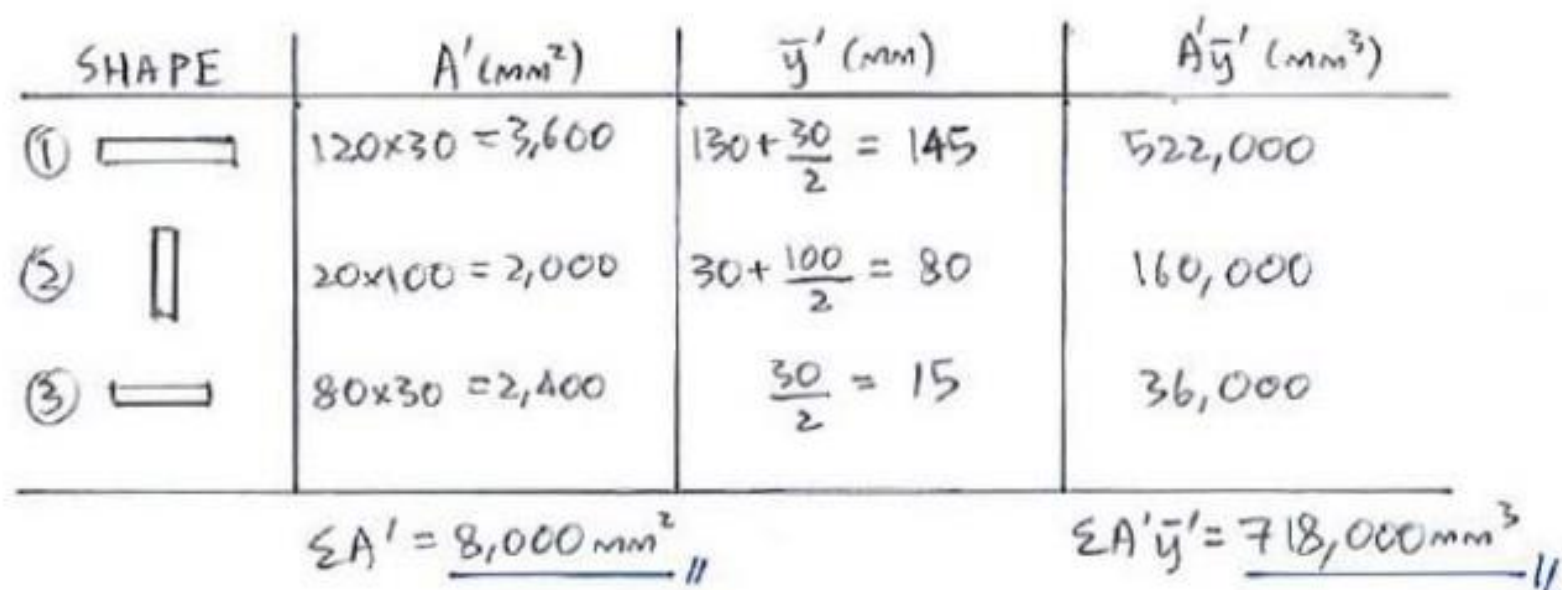 SHAPE A' (mm²) ȳ' (mm) A'ȳ' (mm³)
① 120×30 = 3,600 130+30/2 = 145 522,000
② 20×100 = 2,000 30+100/2 = 80 160,000
③ 80×30 = 2,400 30/2 = 15 36,000
ΣA' = 8,000 mm² ΣA'ȳ' = 718,000 mm³